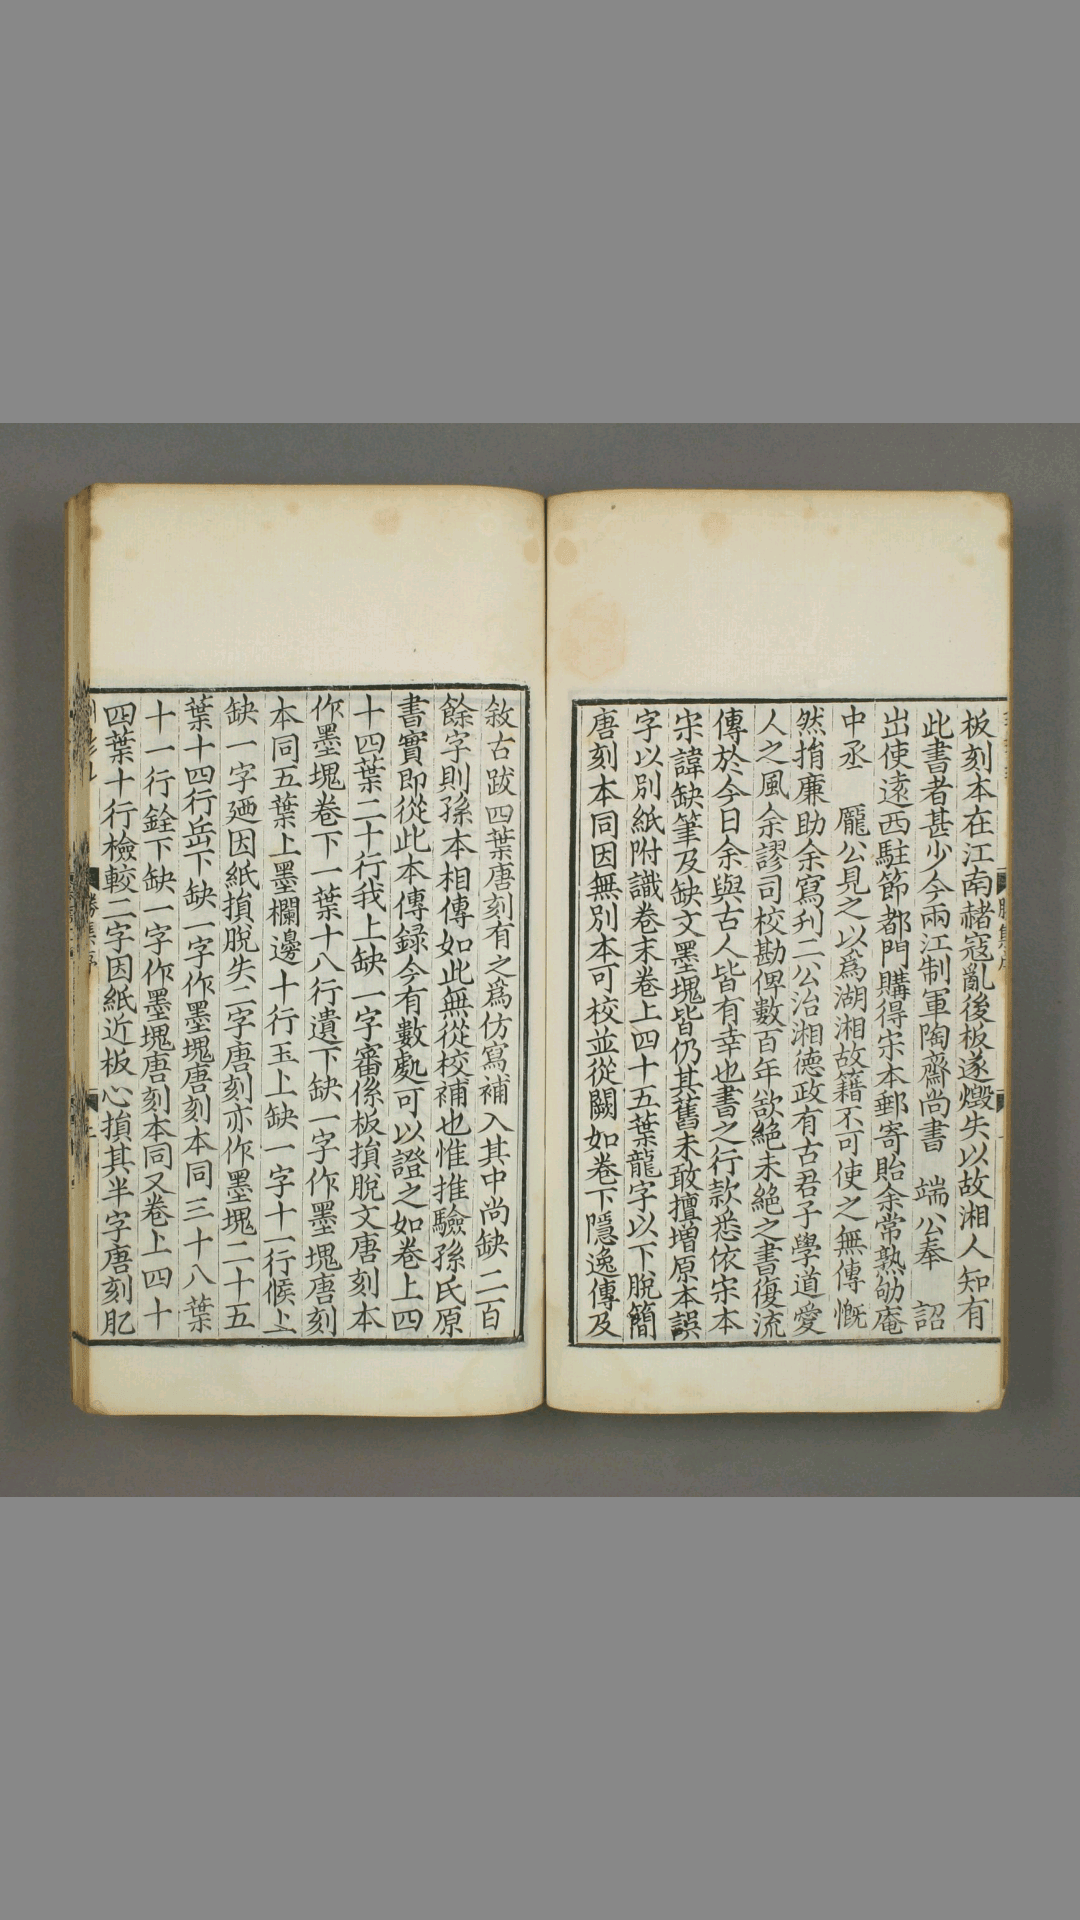 板刻本在江南赭寇亂後板遂燬失以故湘人知有
此書者甚少今兩江制軍陶齋尚書　端公奉　詔
出使遠西駐節都門購得宋本郵寄貽余常熟劬庵
中丞　龐公見之以爲湖湘故籍不可使之無傳慨
然捐廉助余寫刋二公治湘德政有古君子學道愛
人之風余謬司校勘俾數百年欲絕未絕之書復流
傳於今日余與古人皆有幸也書之行款悉依宋本
宋諱缺筆及缺文墨塊皆仍其舊未敢擅增原本誤
字以別紙附識卷末卷上四十五葉龍字以下脫簡
唐刻本同因無別本可校並從闕如卷下隱逸傳及
敘古跋四葉唐刻有之爲仿寫補入其中尚缺二百
餘字則孫本相傳如此無從校補也惟推驗孫氏原
書實即從此本傳録今有數處可以證之如卷上四
十四葉二十行我上缺一字審係板損脫文唐刻本
作墨塊卷下一葉十八行遺下缺一字作墨塊唐刻
本同五葉上墨欄邊十行玉上缺一字十一行候上
缺一字廼因紙損脫失二字唐刻亦作墨塊二十五
葉十四行岳下缺一字作墨塊唐刻本同三十八葉
十一行銓下缺一字作墨塊唐刻本同又卷上四十
四葉十行檢較二字因紙近板心損其半字唐刻肊
勝集序